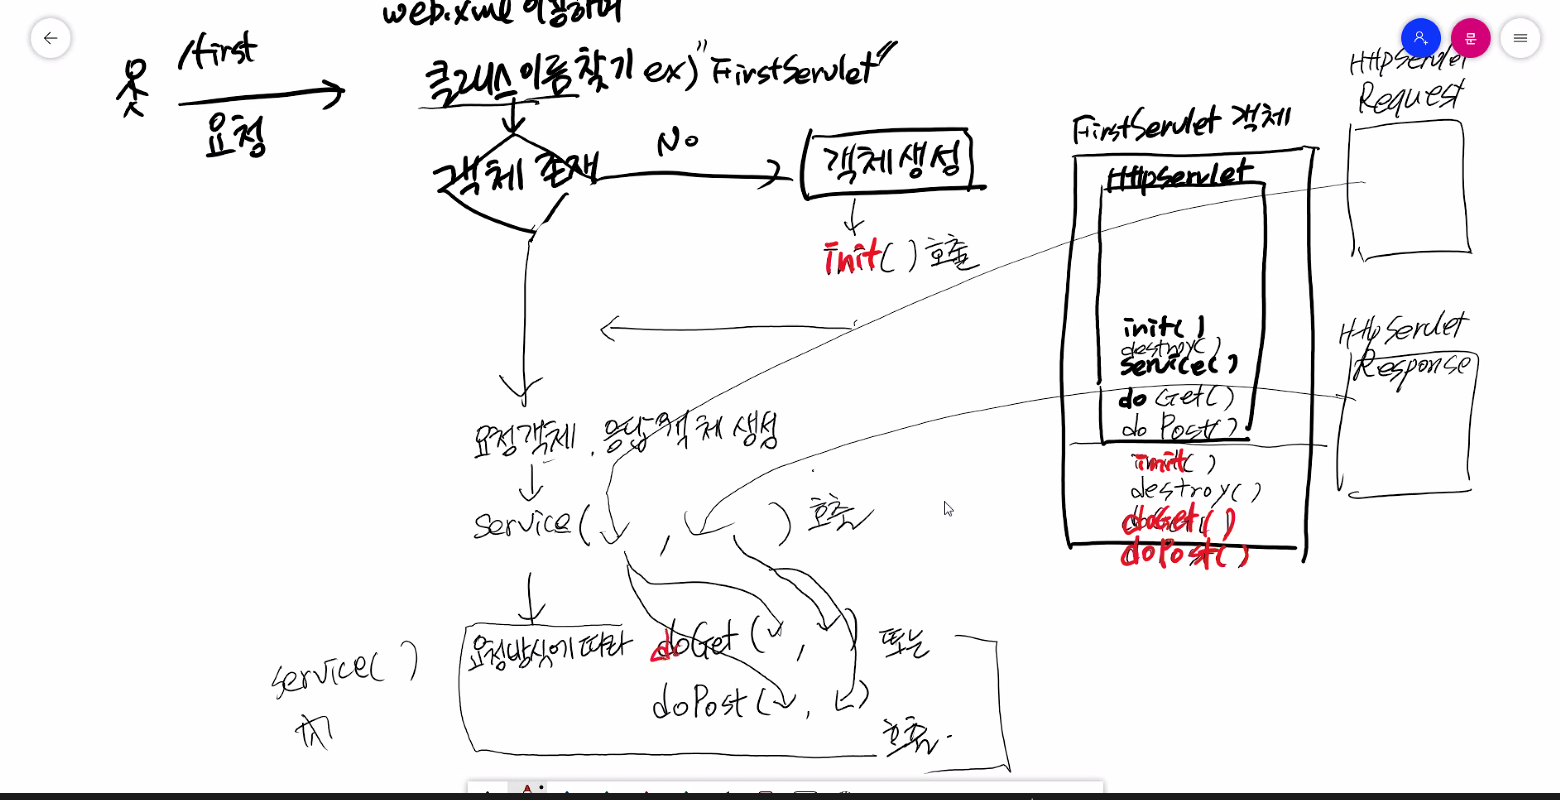 web.xml 이용하여
/first
요청
클래스 이름 찾기 ex) "FirstServlet"
객체 존재
No
객체생성
init() 호출
요청객체, 응답객체 생성
service( , ) 호출
요청방식에 따라 doGet( , ) 또는
doPost( , )
호출.
service()
문
FirstServlet 객체
HttpServlet
init()
destroy()
service()
doGet()
doPost()
init()
destroy()
doGet()
doPost()
HttpServlet
Request
HttpServlet
Response